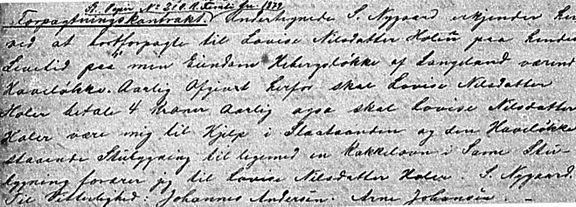 Forpagtningskontrakt. Undertegnede S. Nygaard erkjender her
ved at bortforpagte til Lovise Nilsdatter Holer paa hendes
Levetid paa min Eiendom Hebergsløkke af Langeland værende
Haveløkke. Aarlig Afgivt herfor skal Lovise Nilsdatter
Holer betale 4 Kroner Aarlig ogsa skal Lovise Nilsdatter
Holer være mig til Hjelp i Slaataanden og den Haveløkke
staaende Stubygning tilligemed en Kakkelovn i Samme Stu-
bygning forærer jeg til Lovise Nilsdatter Holer S. Nygaard.
Til Vitterlighed: Johannes Andersen. Arne Johansen.